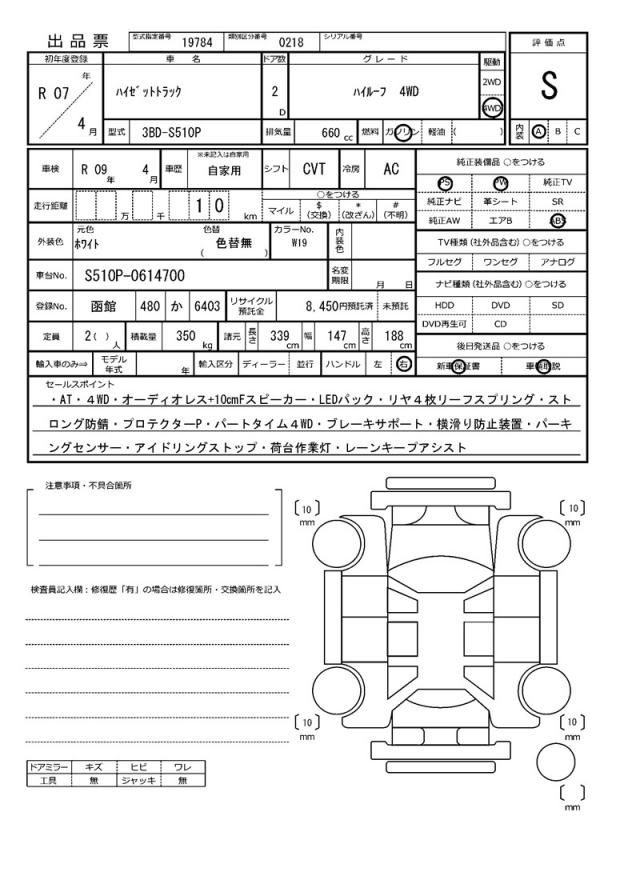 出品票 型式指定番号 19784 類別区分番号 0218 シリアル番号
評価点
S
内装 A B C
初年度登録 車名 ドア数 グレード 駆動
R 07 年 4 月
ハイゼットトラック 2 D ハイルーフ 4WD 2WD 4WD
型式 3BD-S510P 排気量 660 cc 燃料 ガソリン 軽油 ( )
車検 R 09 年 4 月 車歴 ※未記入は自家用 自家用 シフト CVT 冷房 AC
走行距離 万 千 1 0 km ○をつける マイル $ (交換) * (改ざん) # (不明)
外装色 元色 ホワイト 色替 色替無 ( ) カラーNo. W19 内装色
車台No. S510P-0614700 名変期限 月 日
登録No. 函館 480 か 6403 リサイクル預託金 8,450円預託済 未預託
定員 2( ) 人 積載量 350 kg 諸元 長さ 339 cm 幅 147 cm 高さ 188 cm
輸入車のみ⇒ モデル年式 年 輸入区分 ディーラー 並行 ハンドル 左 右
純正装備品 ○をつける
PS PW 純正TV
純正ナビ 革シート SR
純正AW エアB ABS
TV種類 (社外品含む) ○をつける
フルセグ ワンセグ アナログ
ナビ種類 (社外品含む) ○をつける
HDD DVD SD
DVD再生可 CD
後日発送品 ○をつける
新車保証書 車輌取説
セールスポイント
・AT・4WD・オーディオレス+10cmFスピーカー・LEDパック・リヤ4枚リーフスプリング・スト
ロング防錆・プロテクターP・パートタイム4WD・ブレーキサポート・横滑り防止装置・パーキ
ングセンサー・アイドリングストップ・荷台作業灯・レーンキープアシスト
注意事項・不具合箇所
検査員記入欄：修復歴「有」の場合は修復箇所・交換箇所を記入
ドアミラー キズ ヒビ ワレ
工具 無 ジャッキ 無
[ 10 ] mm
[ 10 ] mm
[ 10 ] mm
[ 10 ] mm
[ ] mm